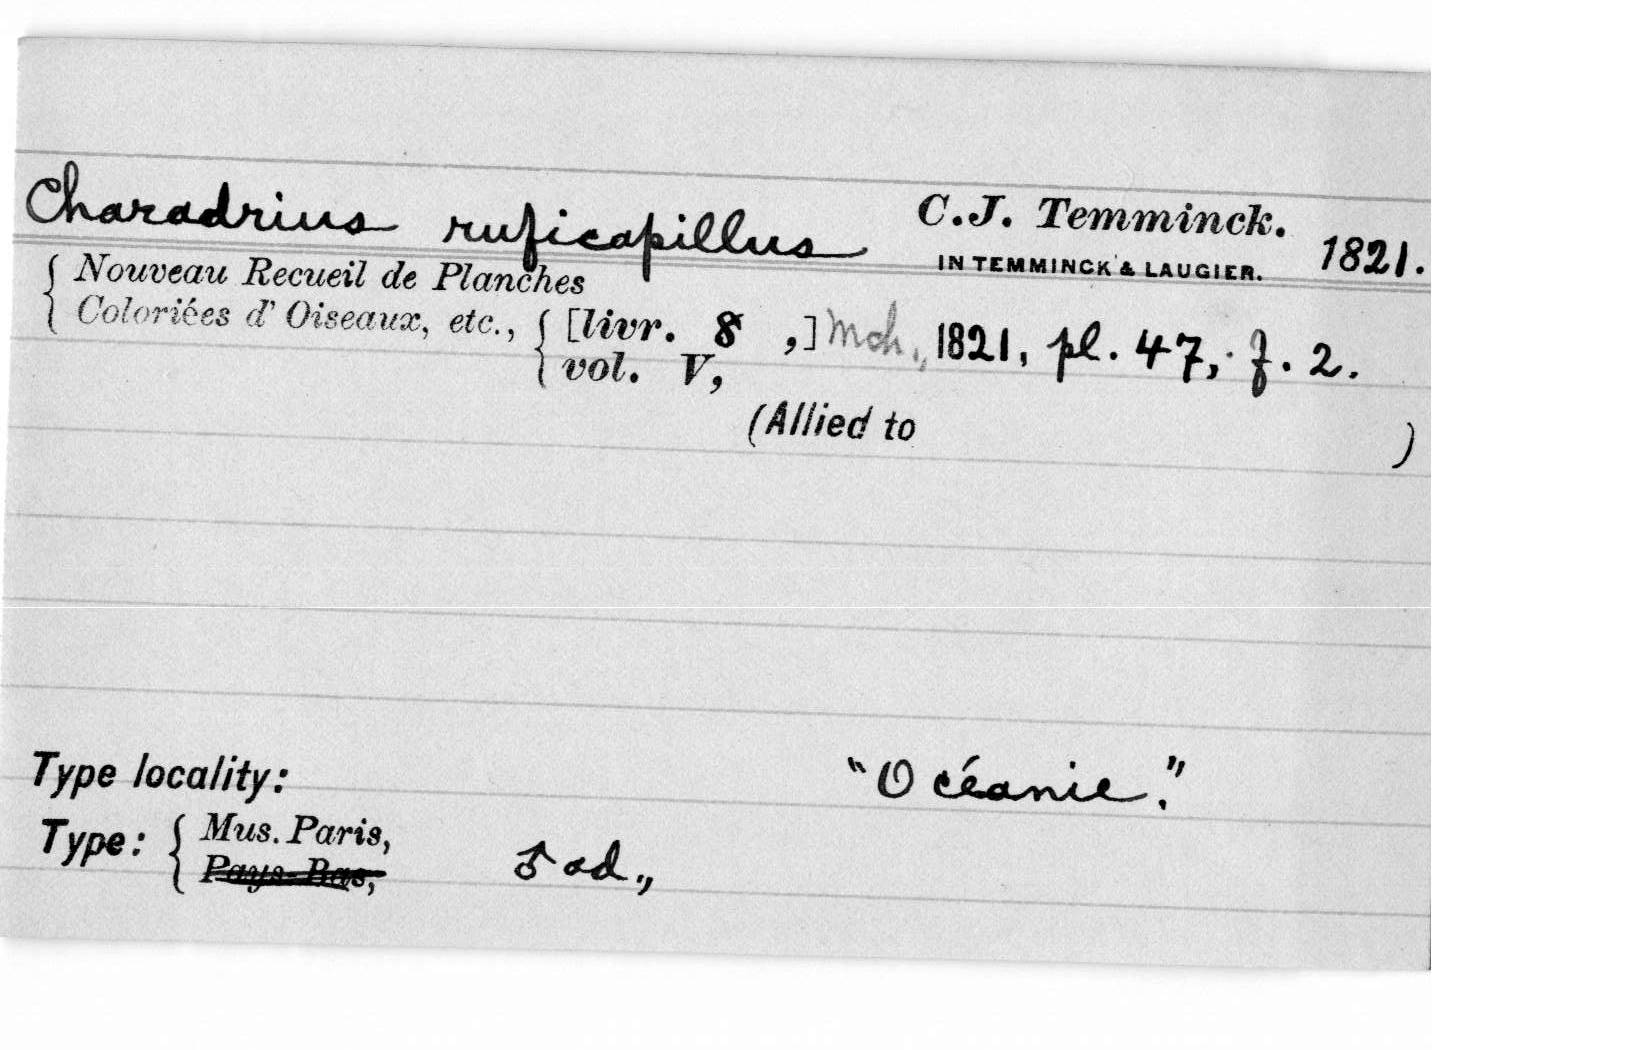 Charadrius ruficapillus C.J. Temminck. 1821.
IN TEMMINCK & LAUGIER.
{ Nouveau Recueil de Planches
Coloriées d' Oiseaux, etc., { [livr. 8 ,] Mch., 1821, pl. 47, f. 2.
vol. V,
(Allied to )
Type locality: "Océanie."
Type: { Mus. Paris, ♂ ad.,
Pays-Bas,